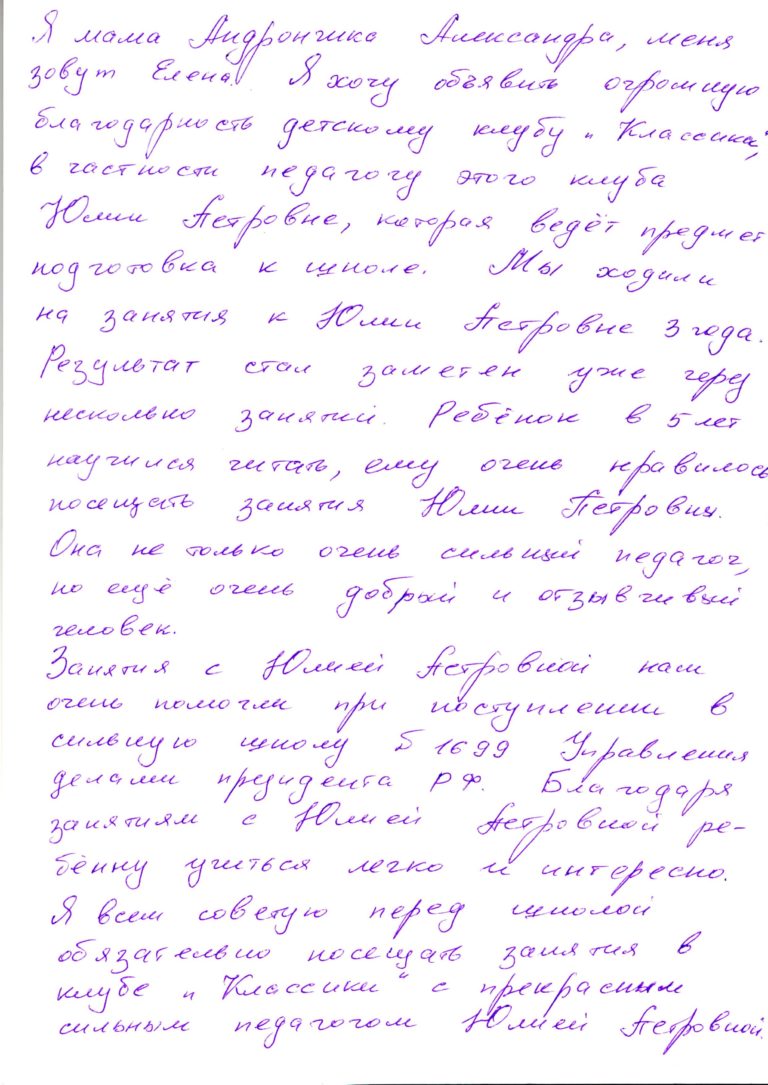 Я мама Андрончика Александра, меня
зовут Елена. Я хочу объявить огромную
благодарность детскому клубу „Классика",
в частности педагогу этого клуба
Юлии Петровне, которая ведёт предмет
подготовка к школе. Мы ходили
на занятия к Юлии Петровне 3 года.
Результат стал заметен уже через
несколько занятий. Ребёнок в 5 лет
научился читать, ему очень нравилось
посещать занятия Юлии Петровны.
Она не только очень сильный педагог,
но ещё очень добрый и отзывчивый
человек.
Занятия с Юлией Петровной нам
очень помогли при поступлении в
сильную школу № 1699 Управления
делами президента РФ. Благодаря
занятиям с Юлией Петровной ре-
бёнку учиться легко и интересно.
Я всем советую перед школой
обязательно посещать занятия в
клубе „Классики" с прекрасным
сильным педагогом Юлией Петровной.